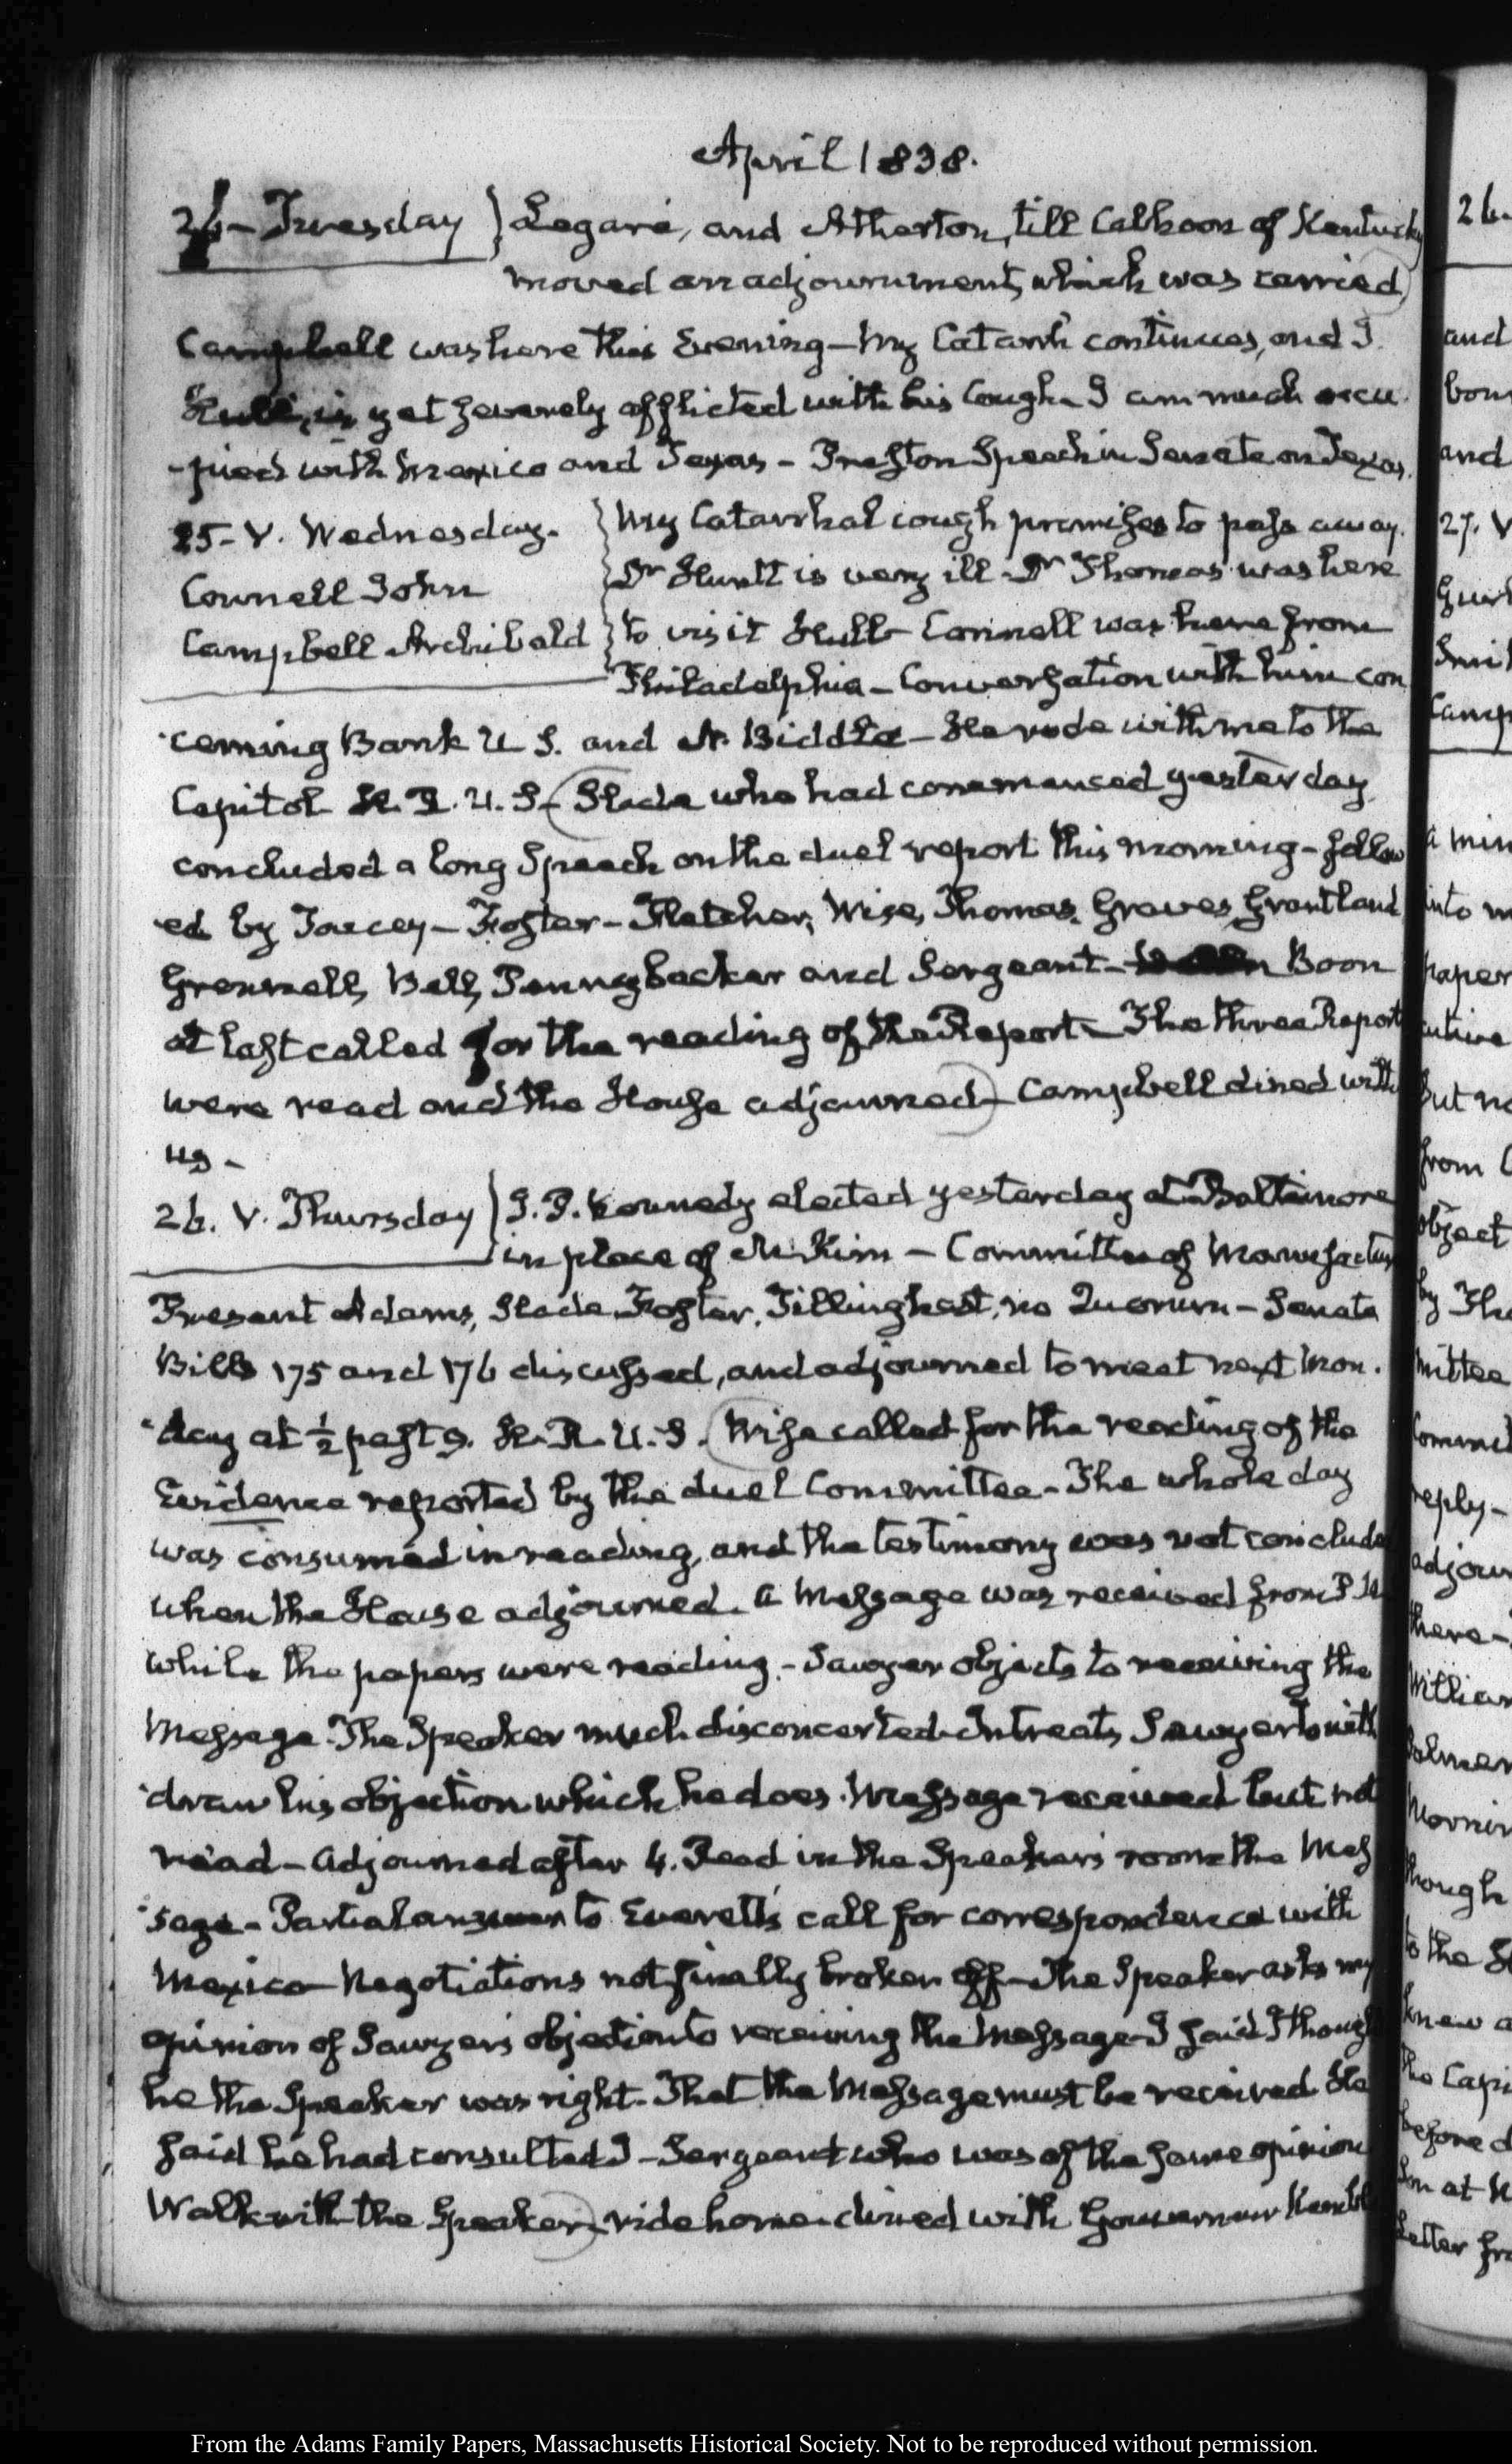 April 1838.
24 - Tuesday } Legaré, and Atherton, till Calhoon of Kentucky
moved an adjournment, which was carried)
Campbell was here this Evening - My Catarrh continues, and I.
Hull, is yet severely afflicted with his Cough - I am much occu-
-pied with Mexico and Texas - Preston Speech in Senate on Texas.
25 - V. Wednesday. } My Catarrhal cough promises to pass away.
Connell John
Campbell Archibald
Dr Huntt is very ill - Dr Thomas was here
to visit Hull - Connell was here from
Philadelphia - Conversation with him con
-cerning Bank U S. and N. Biddle - He rode with me to the
Capitol H. R. U. S - (Slade who had commenced yesterday
concluded a long Speech on the duel report this morning - follow
-ed by Toucey - Foster - Fletcher, Wise, Thomas, Graves, Grantland
Grennell, Bell, Pennybacker and Sergeant - Boon
at last called for the reading of the Report - The three Report
were read and the House adjourned) - Campbell dined with
us -
26. V. Thursday } J. P. Kennedy elected yesterday at Baltimore
in place of McKim - Committee of Manufactur
Present Adams, Slade, Foster, Tillinghast, no Quorum - Senate
Bills 175 and 176 discussed, and adjourned to meet next Mon.
-day at ½ past 9. H. R. U. S. (Wise called for the reading of the
Evidence reported by the duel Committee - The whole day
was consumed in reading, and the testimony was not conclude
when the House adjourned. A Message was received from P U
while the papers were reading - Sawyer objects to receiving the
Message. The Speaker much disconcerted - Intreats Sawyer to with
-draw his objection which he does. Message received but not
read - Adjourned after 4. Read in the Speaker's room the Mes
-sage - Partial answer to Everett's call for correspondence with
Mexico - Negotiations not finally broken off - The Speaker asks my
opinion of Sawyer's objection to receiving the Message - I said I though
he the Speaker was right - That the Message must be received He
said he had consulted J - Sergeant who was of the same opinion
Walk with the Speaker) - ride home - dined with Gouverneur Kembl
From the Adams Family Papers, Massachusetts Historical Society. Not to be reproduced without permission.